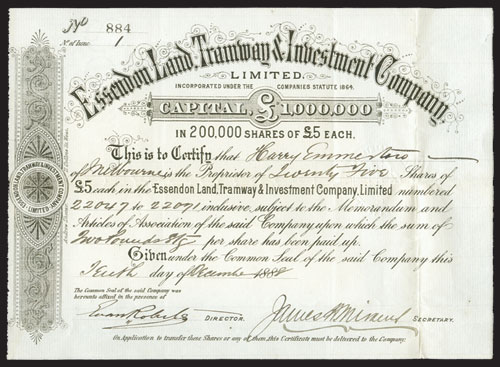 No 884
No. of Issue 1
Essendon Land, Tramway & Investment Company,
LIMITED.
INCORPORATED UNDER THE COMPANIES STATUTE 1864.
CAPITAL, £1,000,000
IN 200,000 SHARES OF £5 EACH.
This is to Certify that Harry Emmerton
of Melbourne is the Proprietor of Twenty Five Shares of
£5 each in the Essendon Land, Tramway & Investment Company, Limited numbered
22047 to 22071 inclusive, subject to the Memorandum and
Articles of Association of the said Company upon which the sum of
Two Pounds per share has been paid up.
Given under the Common Seal of the said Company this
Tenth day of December 1888
The Common Seal of the said Company was
hereunto affixed in the presence of
Evan Roberts DIRECTOR. James SECRETARY.
On Application to transfer these Shares or any of them, this Certificate must be delivered to the Company.
ESSENDON LAND, TRAMWAY & INVESTMENT COMPANY LIMITED